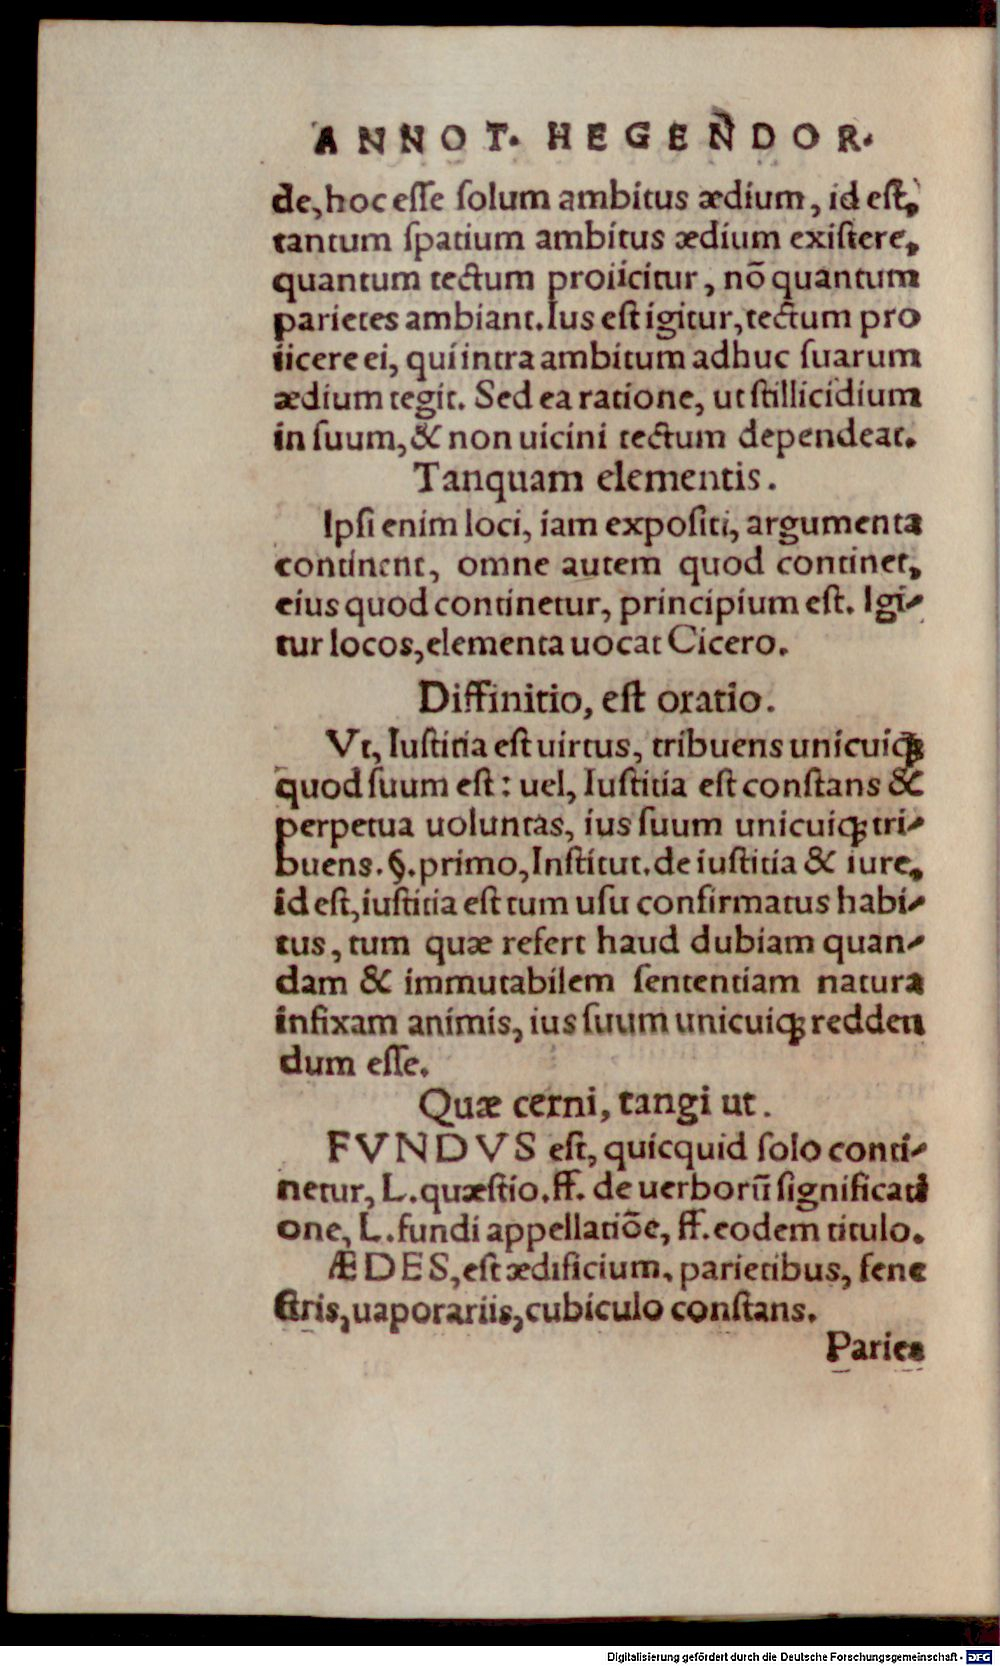 ANNOT. HEGENDOR.
de, hoc esse solum ambitus ædium, id est,
tantum spatium ambitus ædium existere,
quantum tectum proiicitur, nõ quantum
parietes ambiant. Ius est igitur, tectum pro
iicere ei, qui intra ambitum adhuc suarum
ædium tegit. Sed ea ratione, ut stillicidium
in suum, & non uicini tectum dependeat.
Tanquam elementis.
Ipsi enim loci, iam expositi, argumenta
continent, omne autem quod continet,
eius quod continetur, principium est. Igi-
tur locos, elementa uocat Cicero.
Diffinitio, est oratio.
Vt, Iustitia est uirtus, tribuens unicuiq;
quod suum est: uel, Iustitia est constans &
perpetua uoluntas, ius suum unicuiq; tri-
buens. §. primo, Institut. de iustitia & iure,
id est, iustitia est tum usu confirmatus habi-
tus, tum quæ refert haud dubiam quan-
dam & immutabilem sententiam natura
infixam animis, ius suum unicuiq; redden
dum esse.
Quæ cerni, tangi ut.
FVNDVS est, quicquid solo conti-
netur, L. quæstio. ff. de uerborũ significati
one, L. fundi appellatiõe, ff. eodem titulo.
ÆDES, est ædificium, parietibus, fene
stris, uaporariis, cubiculo constans.
Parie-
Digitalisierung gefördert durch die Deutsche Forschungsgemeinschaft - DFG